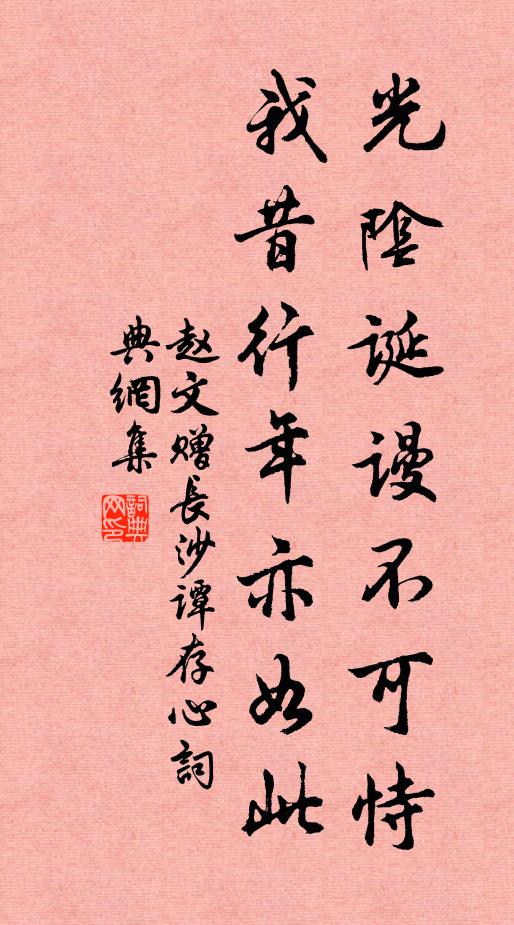 光陰誕謾不可恃
我昔行年亦如此
赵文赠長沙譚存心詞
典網集
詞典
网印